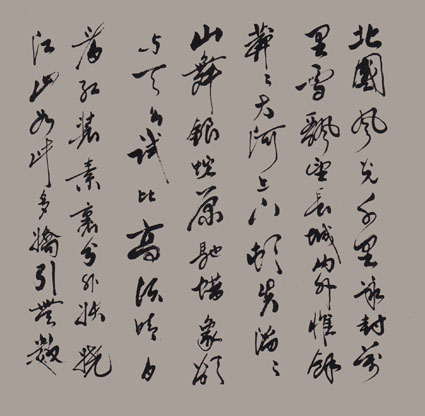 北國風光千里冰封萬
里雪飄望長城内外惟餘
莽〻大河上下頓失滔〻
山舞銀蛇原馳蠟象欲
与天公試比高須晴日
看紅裝素裹分外妖嬈
江山如此多嬌引無數